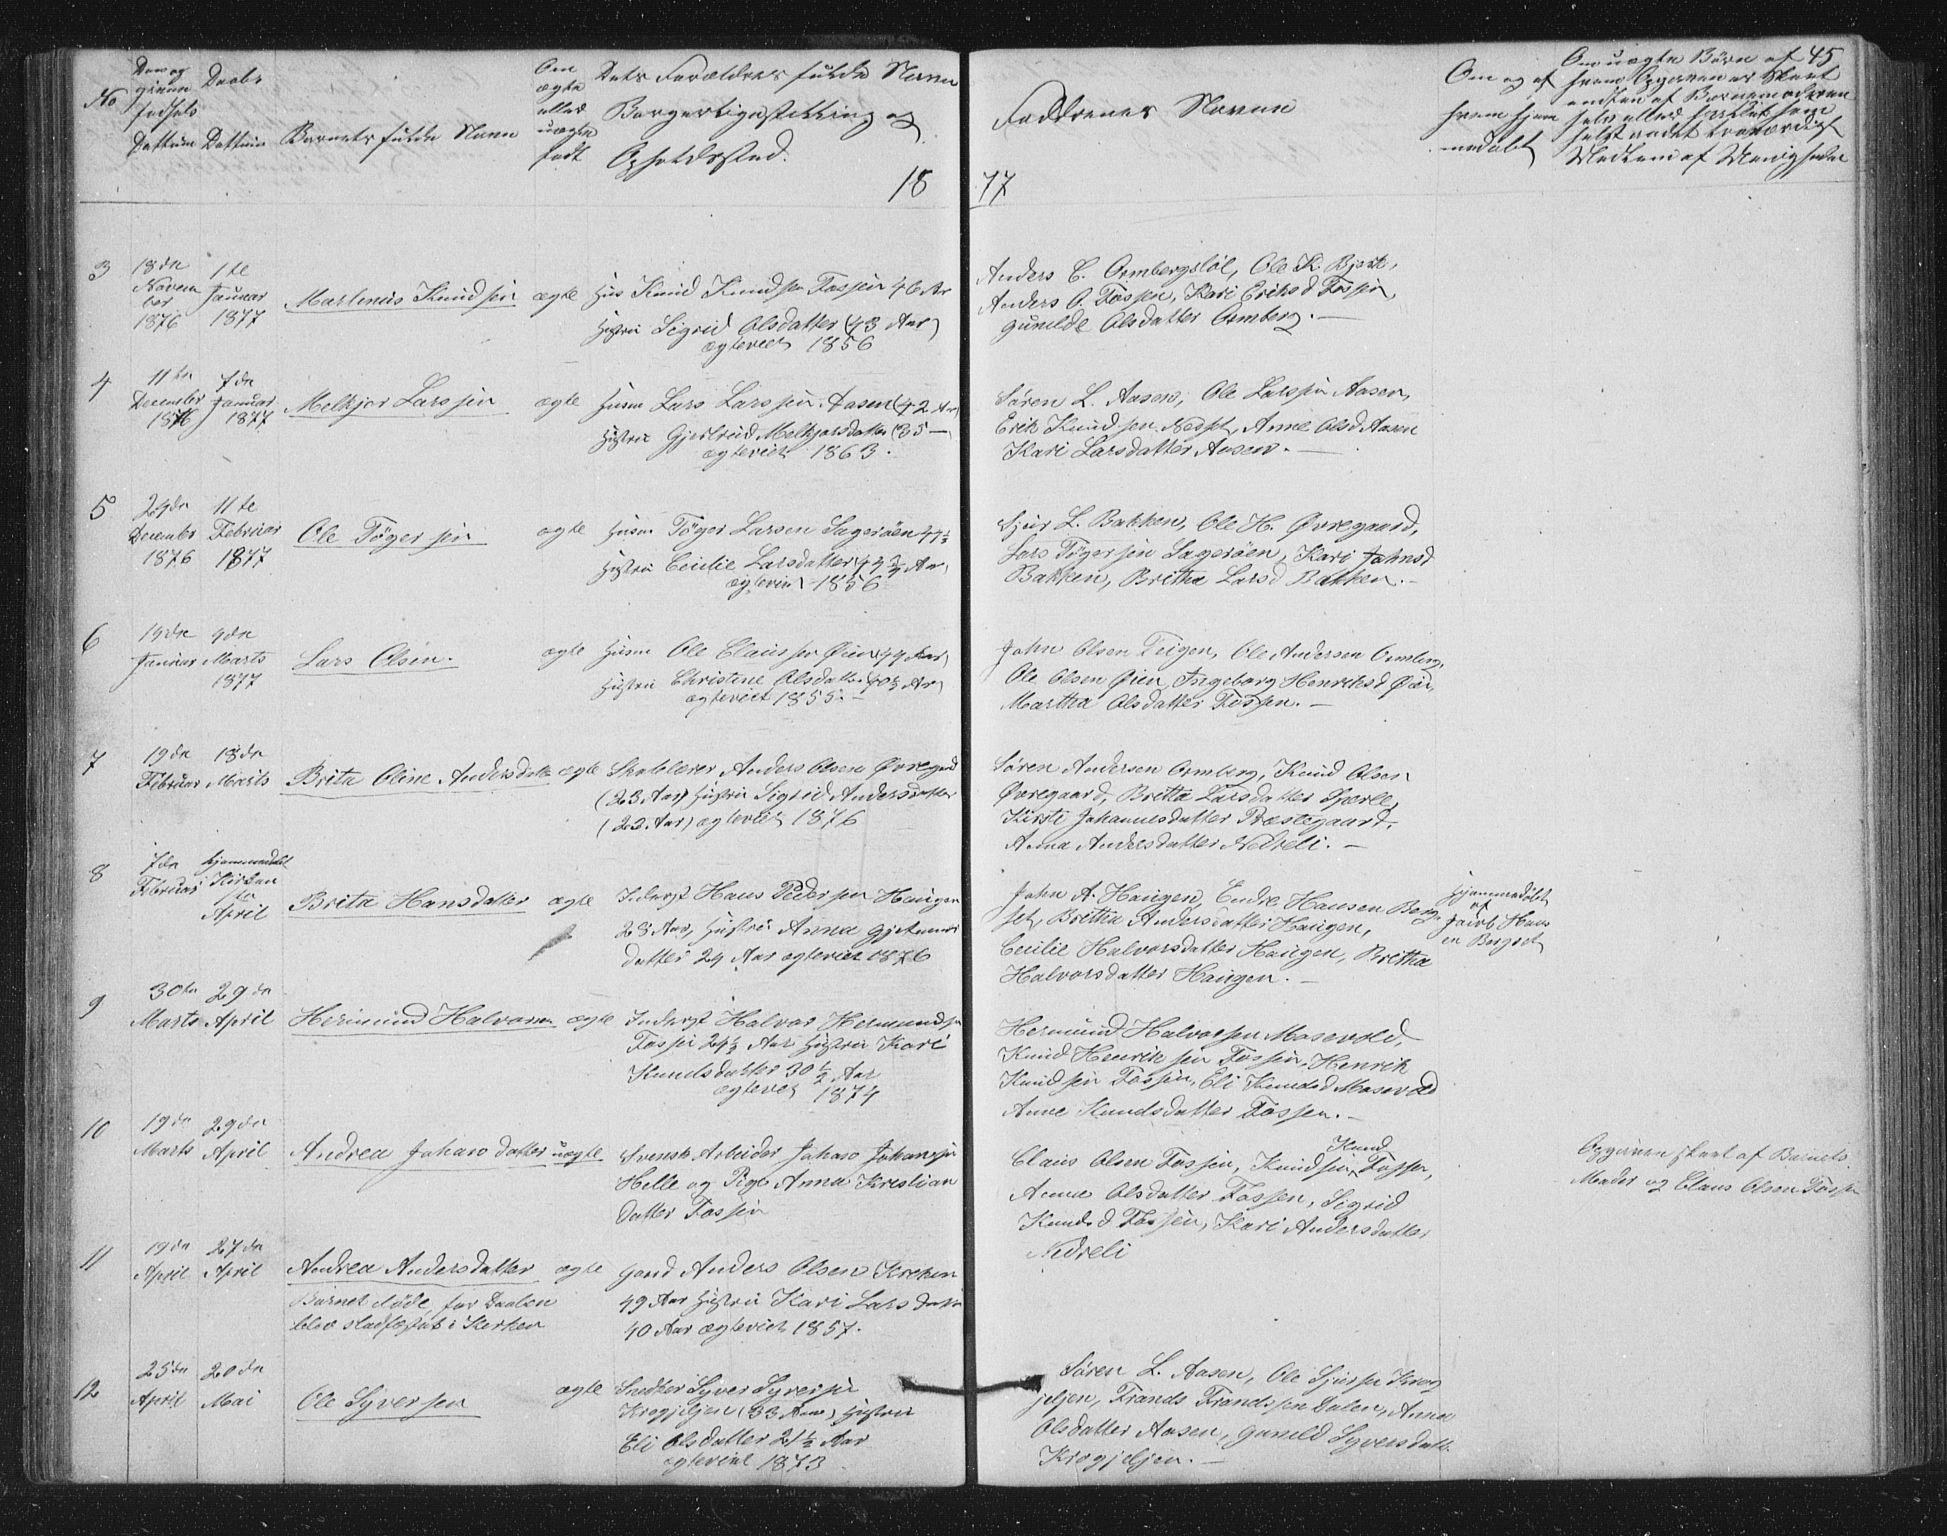 No
Fødsels
Dattum
Daabs
Dattum
Barnets fulde Navn
Om
ægte
eller
uægte
født
Dets Forældres fulde Navn
Borgerligestilling og
Opholdssted.
Faddrenes Navne
Om og af
hvem hjem
medøbt
Om uægte Børn af 45
18 77
3
18de
Novem
ber
1876
1te
Januar
1877
Martenus Knudsen
ægte
Hus Knud Knudsen Fossen 46 Ar
Hustru Sigrid Olsdatter (43 Aar)
ægteviet 1856
Anders E. Ormbergsløl, Ole K. Bjerk,
Anders O. Fossen, Kari Eriksd Fossen,
Gunilde Olsdatter Ormberg. —
4
11te
December
1876
7de
Januar
1877
Melkjor Larssen
ægte
Husm Lars Larssen Aasen (42 Ar)
Hustru Gjertrud Melkjorsdatter (35 —
ægteviet 1863.
Søren L. Aasen, Ole Larssen Aasen,
Erik Knudsen Nedset, Anne Olsd Aasen
Kari Larsdatter Aasen. —
5
24de
December
1876
11te
Februar
1877
Ole Tøgersen
ægte
Husm Tøger Larsen Sagerøen 44½
Hustru Cecilie Larsdatter 42¾ Ar)
ægteviet 1856
Sjur L. Bakken, Ole H. Øvregaard,
Lars Tøgersen Sagerøen, Kari Johnsd
Bakken, Britha Larsd Bakken. —
6
Januar
4de
Marts
1877
Lars Olsen.
ægte
Husm Ole Claussen Øien (44 Aar)
Hustru Christine Olsdatter 40½ Ar)
ægteviet 1855. —
John Olsen Teigen, Ole Andersen Ormberg,
Ole Olsen Øien, Ingeborg Henriksd Øien,
Martha Olsdatter Fossen. —
7
19de
Februar
18de
Marts
Brita Oline Andersdatter
ægte
Skolelærer Anders Olsen Øvregaard
(23 Aar) Hustru Sigrid Andersdatter
(22 Aar) ægteviet 1876
Søren Andersen Ormberg, Knud Olsen
Øvregaard, Britta Larsdatter Sperle,
Kirsti Johannesdatter Præstegaard,
Anna Andersdatter Nedreli. —
8
7de
Februar
hjemmedøbt
Kirken
April
Brita Hansdatter
ægte
Inderst Hans Pedersen Haugen
28 Aar, Hustru Anna
datter 24 Aar ægteviet 1876
John A. Haugen, Endre Hansen Berg
set, Britha Andersdatter Haugen,
Cecilie Halvorsdatter Haugen, Britha
Halvorsdatter Haugen. —
Hjemmedøbt
af
Jacob Hans
en Bergset
9
30te
Marts
29de
April
Hermund Halvorsen
ægte
Inderst Halvor Hermundsen
Fossen 24½ Aar Hustru Kari
Knudsdatter 30½ Aar
ægteviet 1874
Hermund Halvorsen Mosevold,
Knud Henriksen Fossen, Henrik
Knudsen Fossen, Eli Knudsd Mosevold
Anne Knudsdatter Fossen. —
10
19de
Marts
29de
April
Andrea Johansdatter
uægte
Svensk Arbeider Johan Johansen
Helle og Pige Anna Kristian
datter Fossen
Claus Olsen Fossen, Knud Knudsen Fossen,
Anne Olsdatter Fossen, Sigrid
Knudsd Fossen, Kari Andersdatter
Nedreli
Opgaven skeet af Barnets
Moder og Claus Olsen Fossen
11
19de
April
27de
April
Andrea Andersdatter
ægte
Barnet døde, før Daaben
blev stadfæstet i Kirken
Gaard Anders Olsen Kroken
49 Aar Hustru Kari Larsdatter
40 Aar ægteviet 1857.
12
25de
April
20de
Mai
Ole Syversen
ægte
Snedker Syver Syversen
Krogjeljen (33 Aar) Hustru
Eli Olsdatter 21½ Aar
ægteviet 1873
Søren L. Aasen, Ole Sjursen Krog
jeljen, Frands Frandssen Dalen, Anna
Olsdatter Aasen, Gunild Syversdatt
Krogjeljen. —